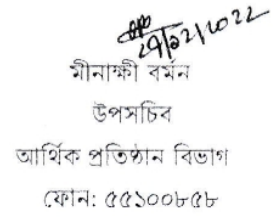 ২৭/১২/২০২২
মীনাক্ষী বর্মন
উপসচিব
আর্থিক প্রতিষ্ঠান বিভাগ
ফোন: ৫৫১০০৮৫৮